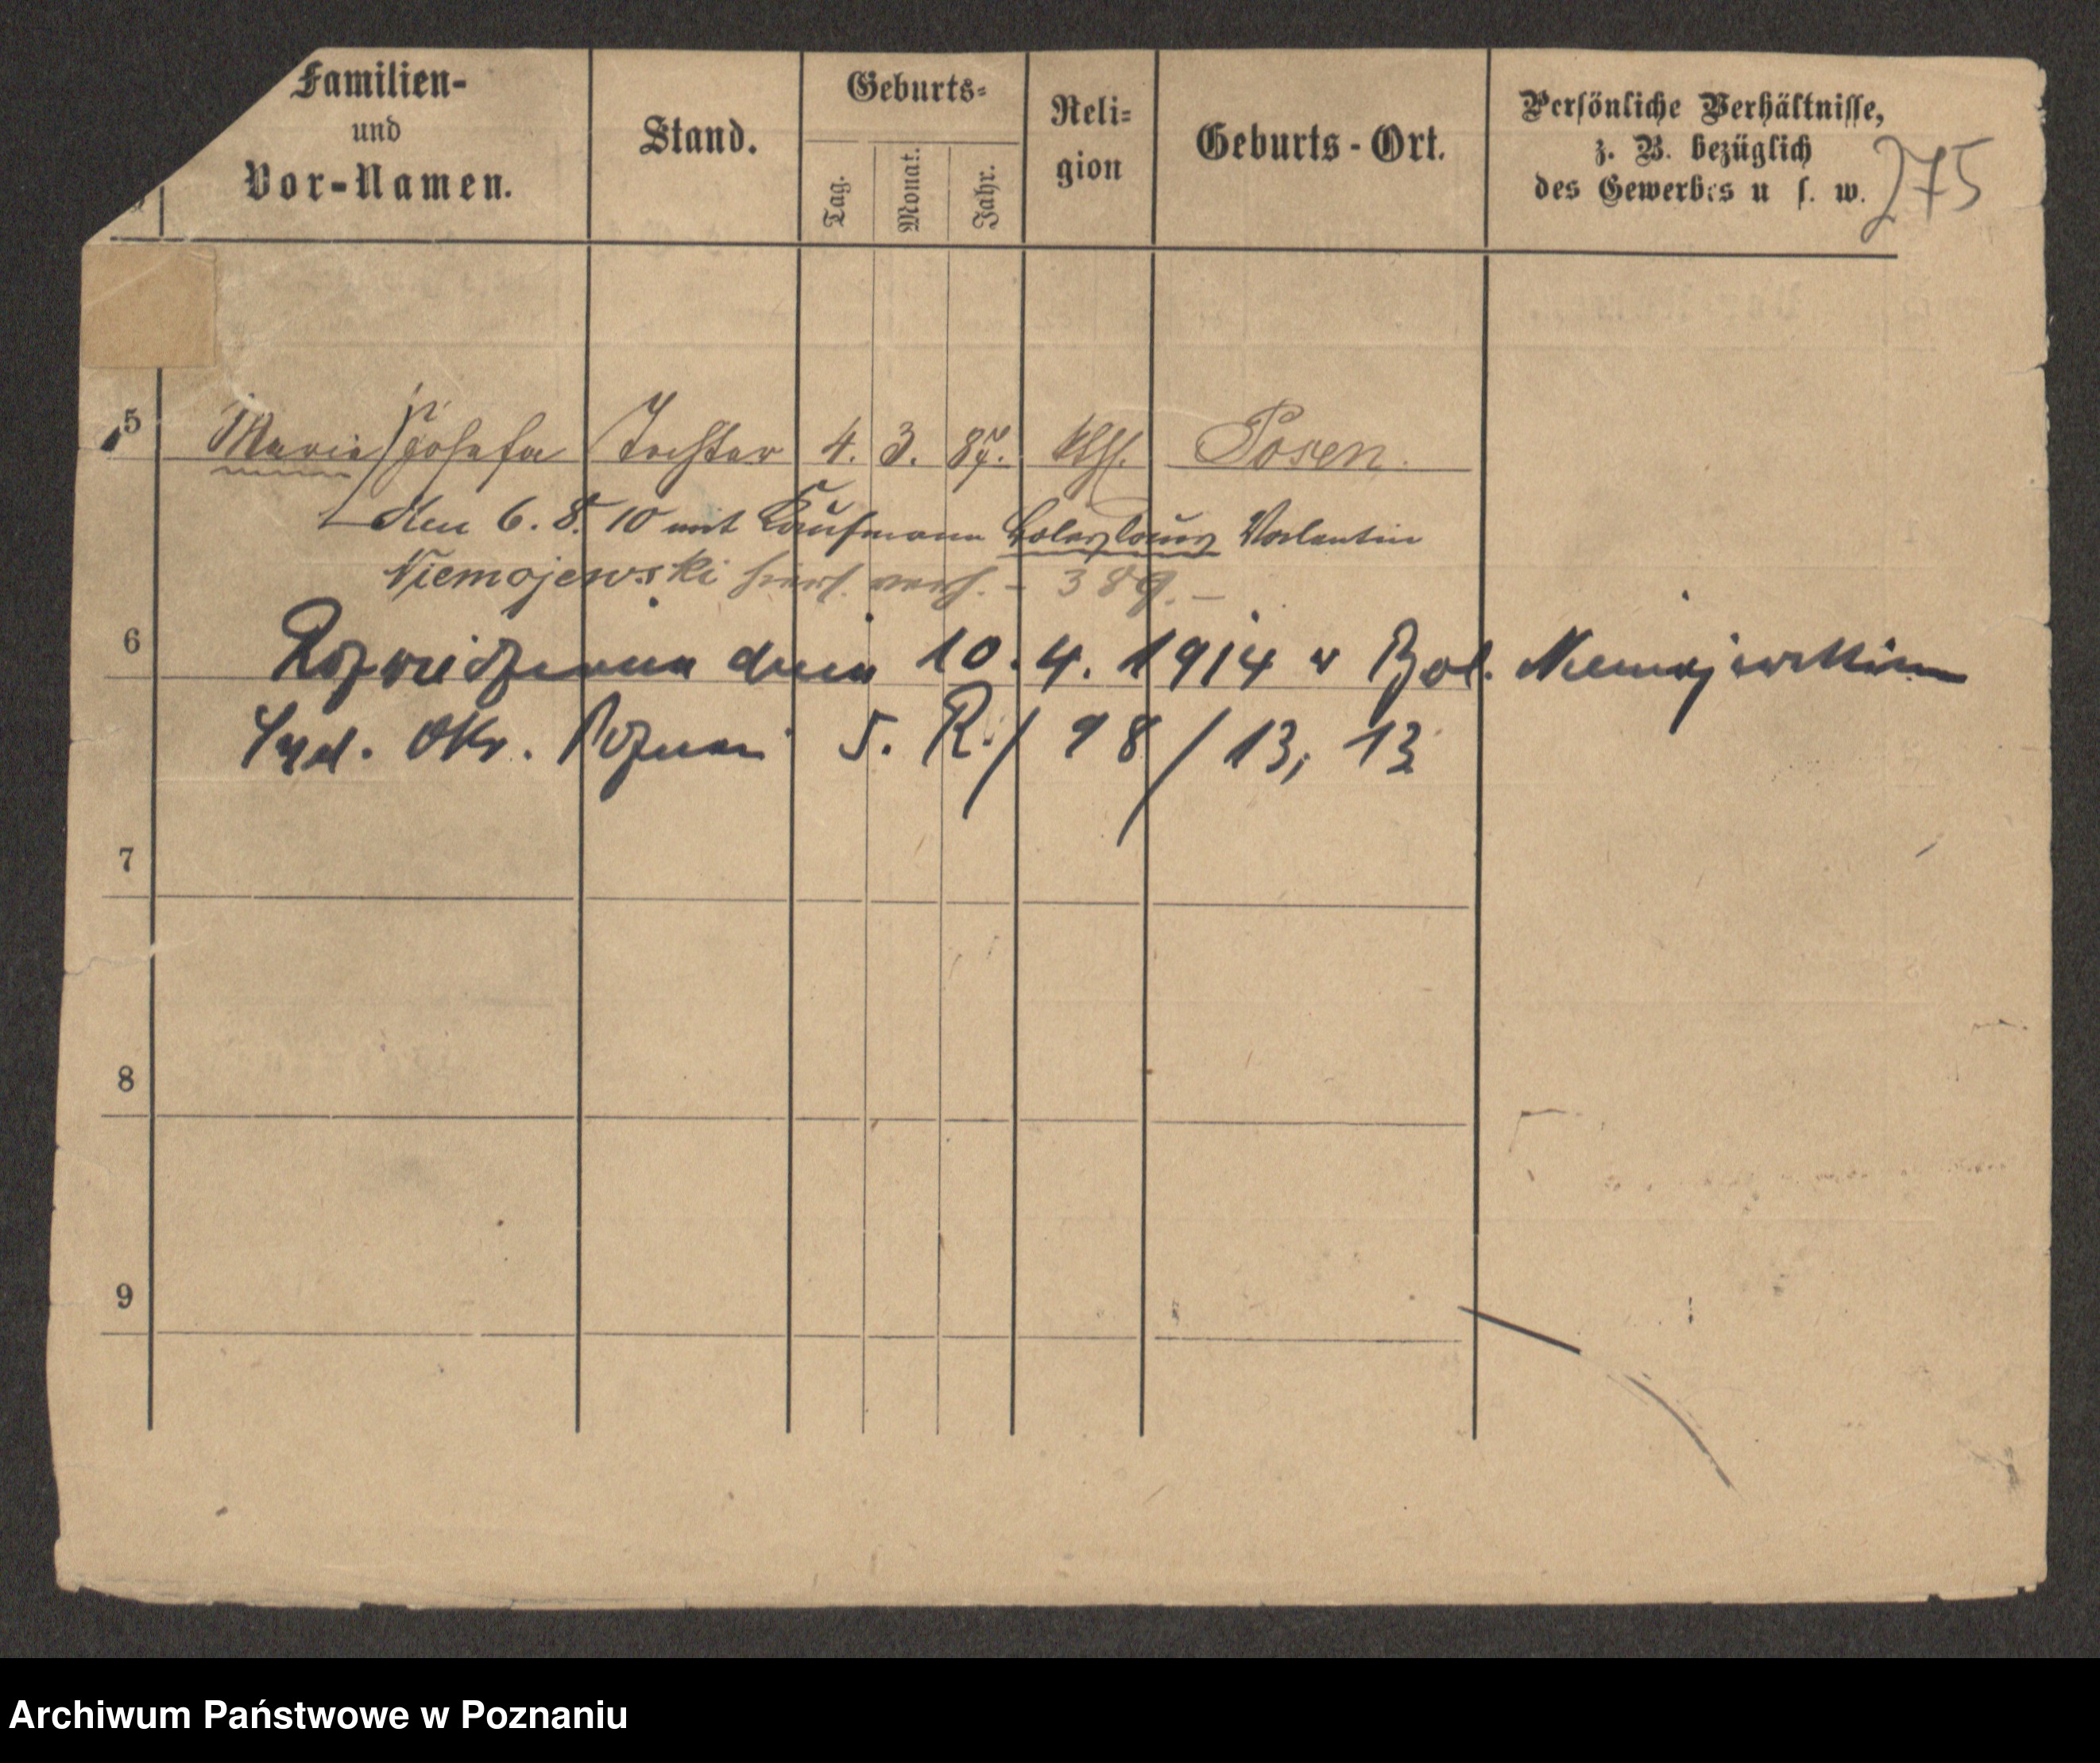 Familien-
und
Vor-Namen.
Stand.
Geburts-
Tag.
Monat.
Jahr.
Reli-
gion
Geburts-Ort.
Persönliche Verhältnisse,
z. B. bezüglich
des Gewerbes u. s. w.
275
5 Maria Josefa Tochter 4. 3. 87. kth. Posen.
Den 6. 8. 10 mit Kaufmann Boleslaus Valentin
Niemojewski hiers. verh. - 389. -
6
Rozwiedziona dnia 10. 4. 1914 v Bol. Niemojewskim
Sąd. Okr. Poznań 5. R./ 98 / 13, 13
7
8
9
Archiwum Państwowe w Poznaniu